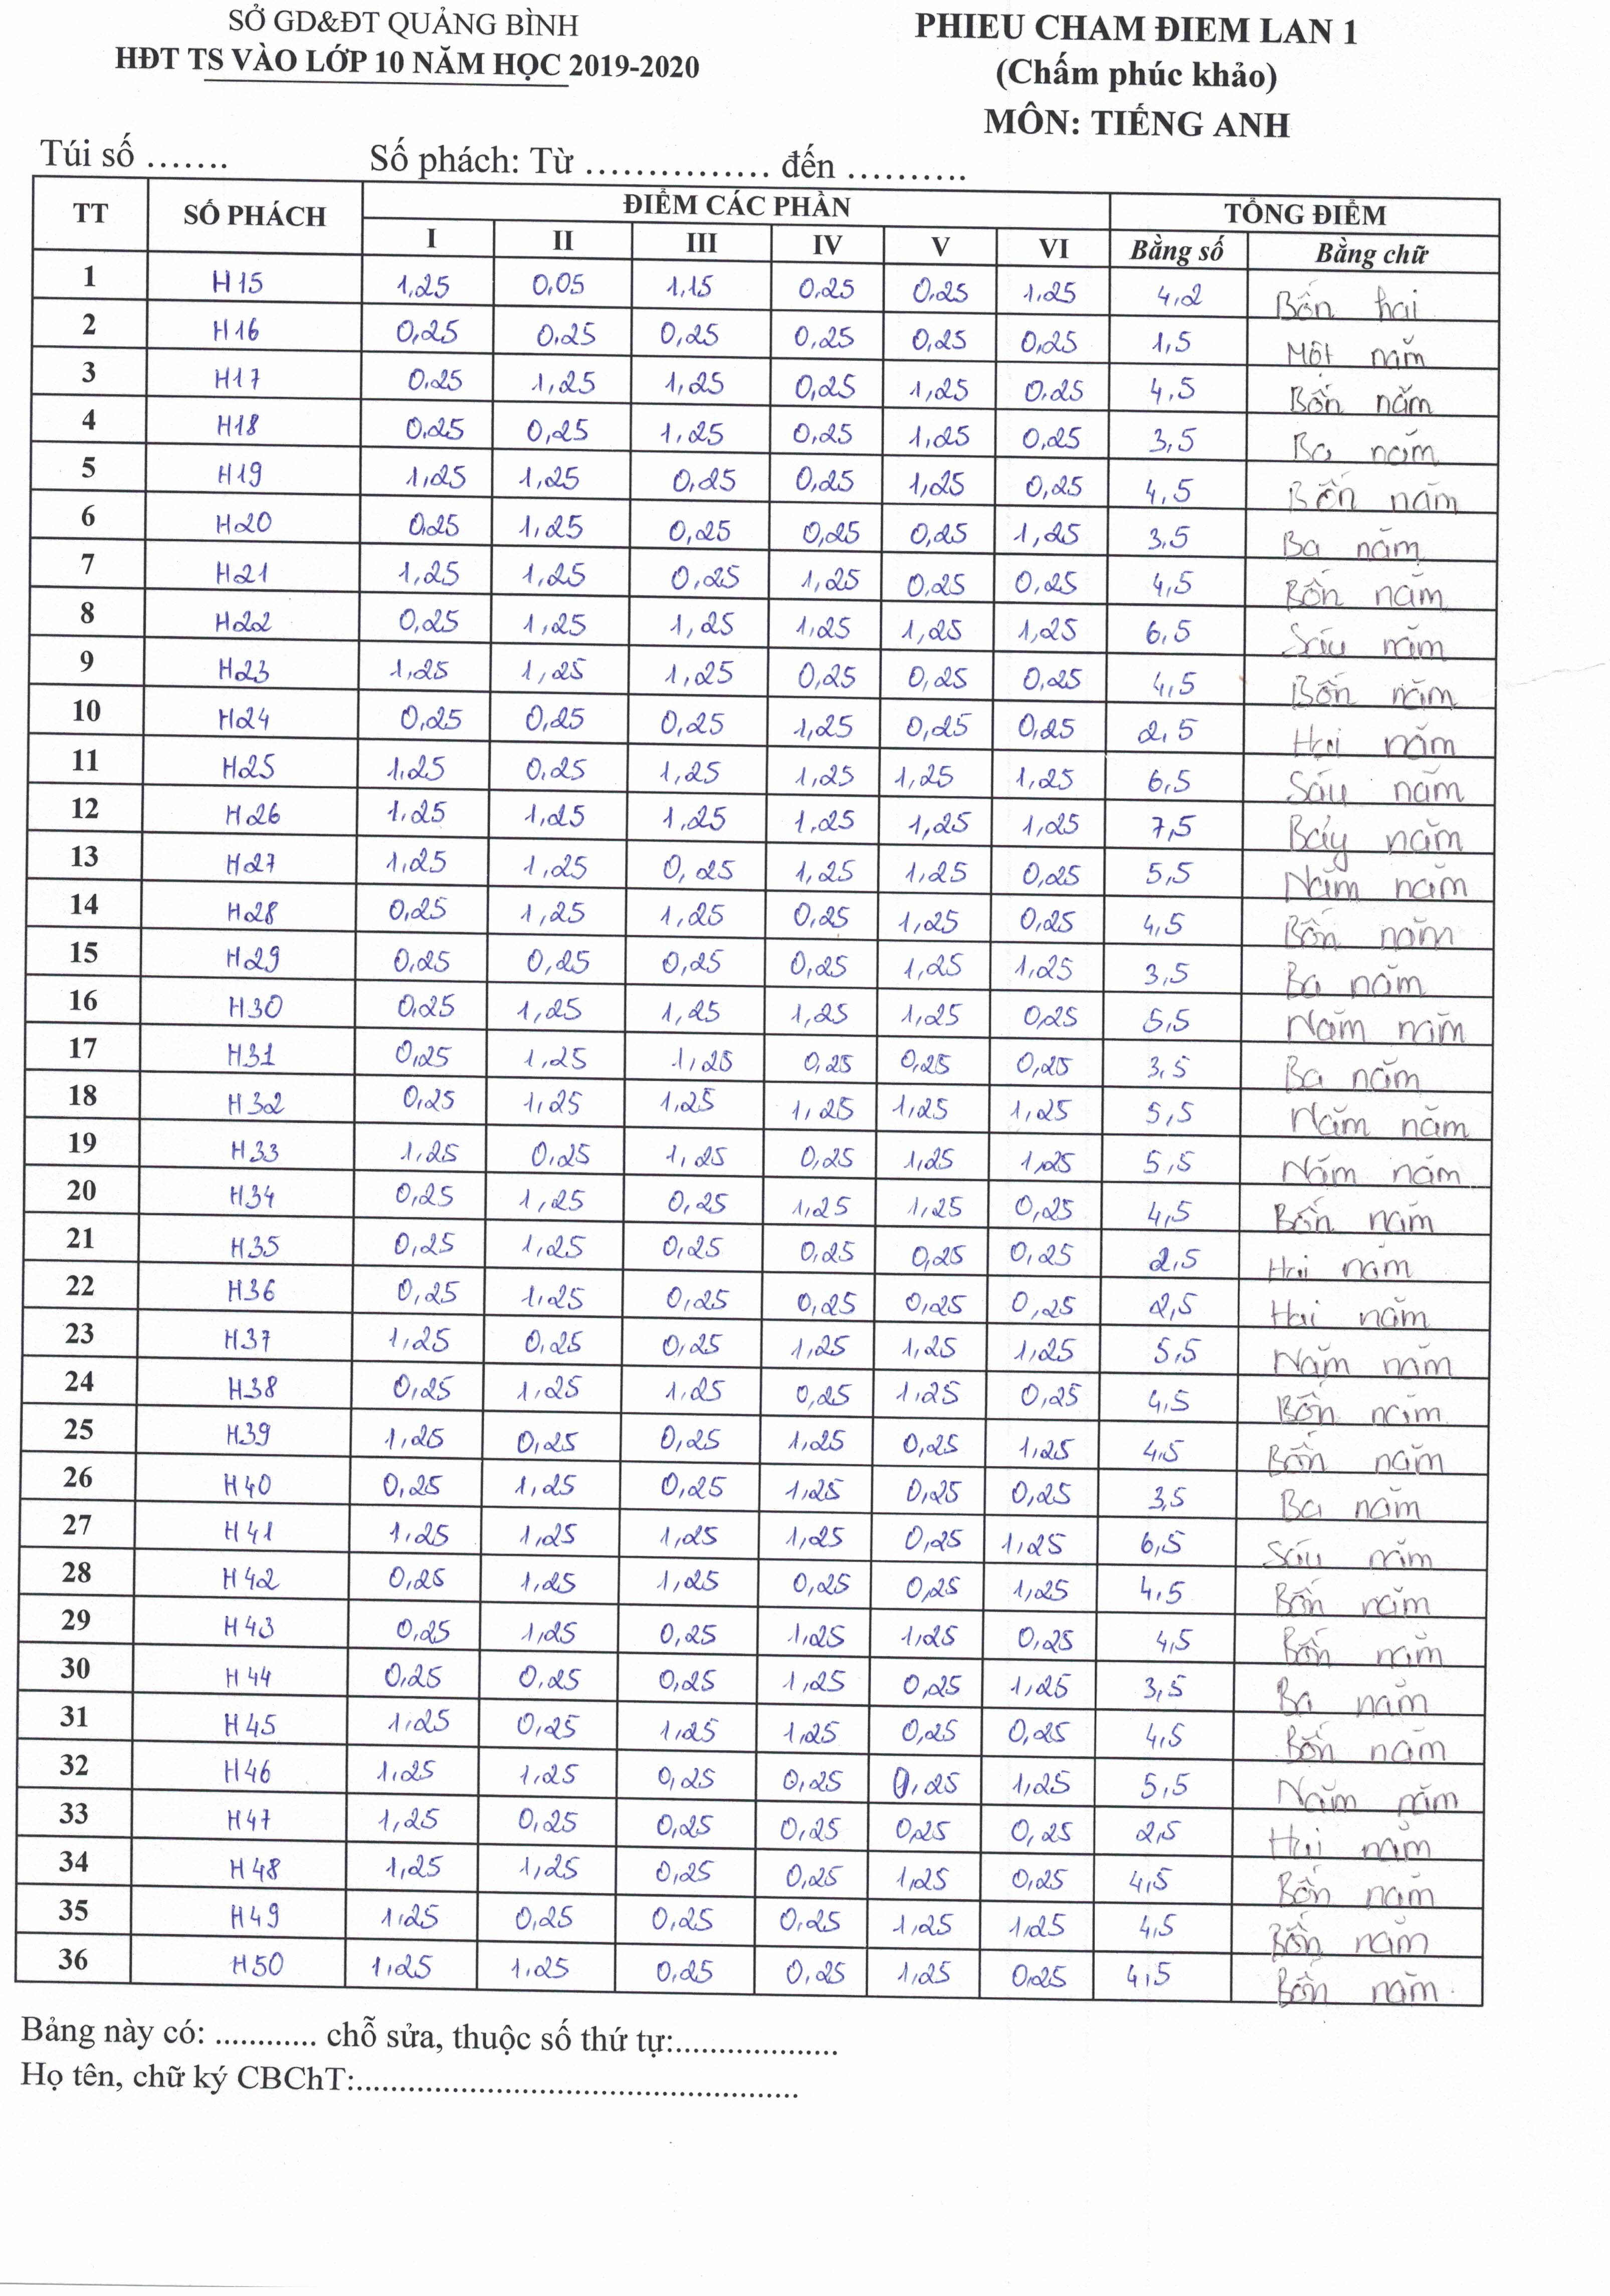 SỞ GD&ĐT QUẢNG BÌNH
HĐT TS VÀO LỚP 10 NĂM HỌC 2019-2020
PHIEU CHAM ĐIEM LAN 1
(Chấm phúc khảo)
MÔN: TIẾNG ANH
Túi số ....... Số phách: Từ ............... đến ..........
TT SỐ PHÁCH ĐIỂM CÁC PHẦN TỔNG ĐIỂM
I II III IV V VI Bằng số Bằng chữ
1 H15 1,25 0,05 1,15 0,25 0,25 1,25 4,2 Bốn hai
2 H16 0,25 0,25 0,25 0,25 0,25 0,25 1,5 Một năm
3 H17 0,25 1,25 1,25 0,25 1,25 0,25 4,5 Bốn năm
4 H18 0,25 0,25 1,25 0,25 1,25 0,25 3,5 Ba năm
5 H19 1,25 1,25 0,25 0,25 1,25 0,25 4,5 Bốn năm
6 H20 0,25 1,25 0,25 0,25 0,25 1,25 3,5 Ba năm
7 H21 1,25 1,25 0,25 1,25 0,25 0,25 4,5 Bốn năm
8 H22 0,25 1,25 1,25 1,25 1,25 1,25 6,5 Sáu năm
9 H23 1,25 1,25 1,25 0,25 0,25 0,25 4,5 Bốn năm
10 H24 0,25 0,25 0,25 1,25 0,25 0,25 2,5 Hai năm
11 H25 1,25 0,25 1,25 1,25 1,25 1,25 6,5 Sáu năm
12 H26 1,25 1,25 1,25 1,25 1,25 1,25 7,5 Bảy năm
13 H27 1,25 1,25 0,25 1,25 1,25 0,25 5,5 Năm năm
14 H28 0,25 1,25 1,25 0,25 1,25 0,25 4,5 Bốn năm
15 H29 0,25 0,25 0,25 0,25 1,25 1,25 3,5 Ba năm
16 H30 0,25 1,25 1,25 1,25 1,25 0,25 5,5 Năm năm
17 H31 0,25 1,25 1,25 0,25 0,25 0,25 3,5 Ba năm
18 H32 0,25 1,25 1,25 1,25 1,25 1,25 5,5 Năm năm
19 H33 1,25 0,25 1,25 0,25 1,25 1,25 5,5 Năm năm
20 H34 0,25 1,25 0,25 1,25 1,25 0,25 4,5 Bốn năm
21 H35 0,25 1,25 0,25 0,25 0,25 0,25 2,5 Hai năm
22 H36 0,25 1,25 0,25 0,25 0,25 0,25 2,5 Hai năm
23 H37 1,25 0,25 0,25 1,25 1,25 1,25 5,5 Năm năm
24 H38 0,25 1,25 1,25 0,25 1,25 0,25 4,5 Bốn năm
25 H39 1,25 0,25 0,25 1,25 0,25 1,25 4,5 Bốn năm
26 H40 0,25 1,25 0,25 1,25 0,25 0,25 3,5 Ba năm
27 H41 1,25 1,25 1,25 1,25 0,25 1,25 6,5 Sáu năm
28 H42 0,25 1,25 1,25 0,25 0,25 1,25 4,5 Bốn năm
29 H43 0,25 1,25 0,25 1,25 1,25 0,25 4,5 Bốn năm
30 H44 0,25 0,25 0,25 1,25 0,25 1,25 3,5 Ba năm
31 H45 1,25 0,25 1,25 1,25 0,25 0,25 4,5 Bốn năm
32 H46 1,25 1,25 0,25 0,25 0,25 1,25 5,5 Năm năm
33 H47 1,25 0,25 0,25 0,25 0,25 0,25 2,5 Hai năm
34 H48 1,25 1,25 0,25 0,25 1,25 0,25 4,5 Bốn năm
35 H49 1,25 0,25 0,25 0,25 1,25 1,25 4,5 Bốn năm
36 H50 1,25 1,25 0,25 0,25 1,25 0,25 4,5 Bốn năm
Bảng này có: ............ chỗ sửa, thuộc số thứ tự:...................
Họ tên, chữ ký CBChT:.....................................................